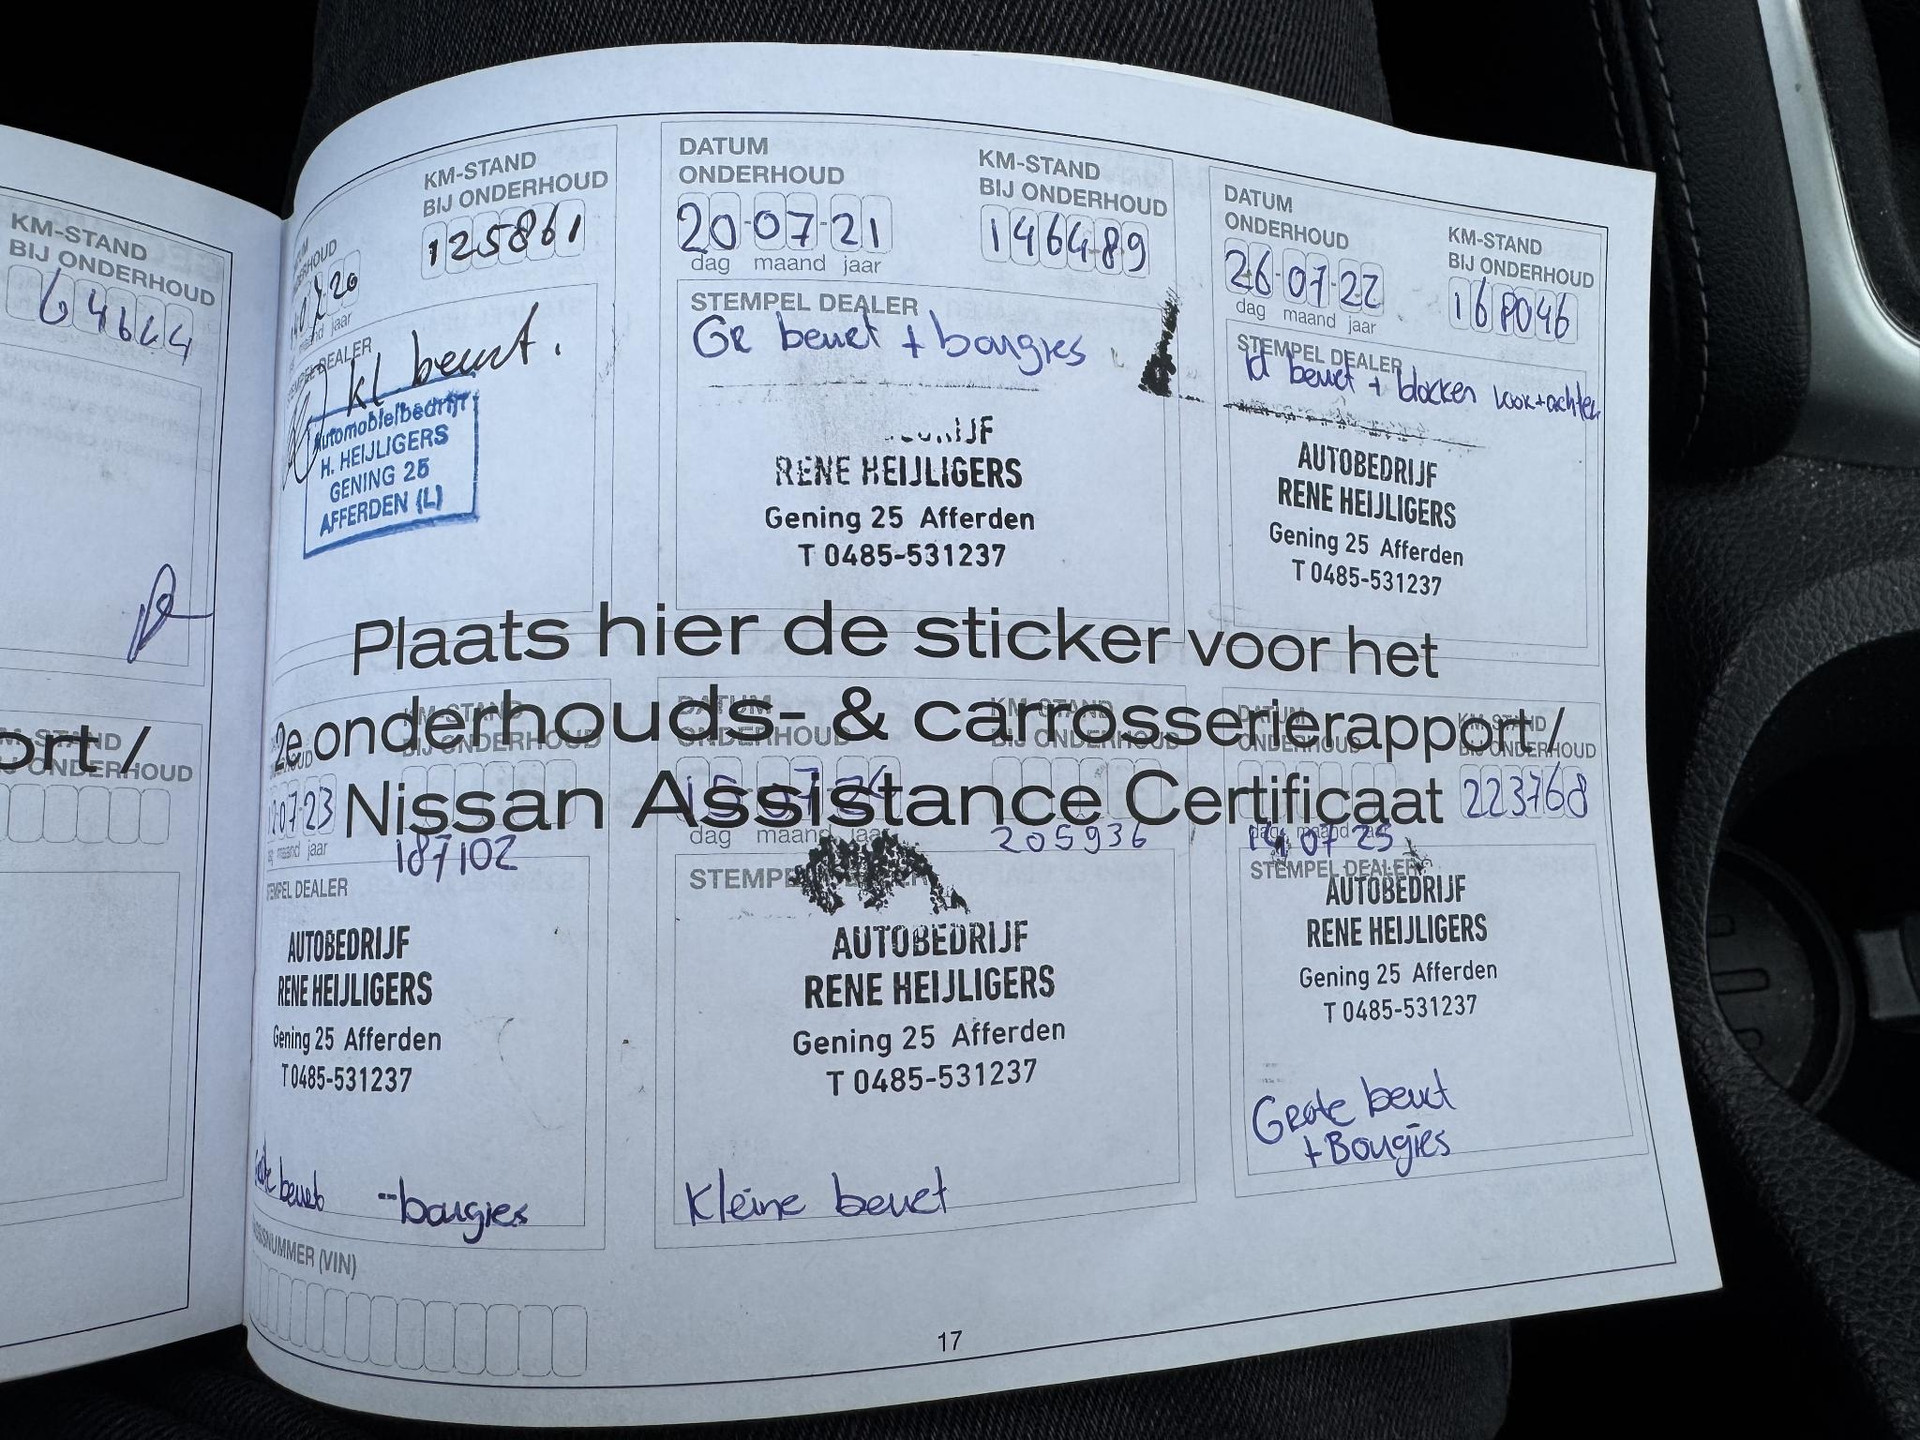 KM-STAND
BIJ ONDERHOUD
KM-STAND
BIJ ONDERHOUD
125861
20
maand jaar
kl beurt.
Automobielbedrijf
H. HEIJLIGERS
GENING 25
AFFERDEN (L)
DATUM
ONDERHOUD
20-07-21
dag maand jaar
KM-STAND
BIJ ONDERHOUD
146489
STEMPEL DEALER
GR beurt + bougies
RENE HEIJLIGERS
Gening 25 Afferden
T 0485-531237
DATUM
ONDERHOUD
26-07-22
dag maand jaar
KM-STAND
BIJ ONDERHOUD
168046
STEMPEL DEALER
kl beurt + blokken voor+achter
AUTOBEDRIJF
RENE HEIJLIGERS
Gening 25 Afferden
T 0485-531237
Plaats hier de sticker voor het
2e onderhouds- & carrosserierapport /
Nissan Assistance Certificaat
KM-STAND
BIJ ONDERHOUD
07-23
maand jaar
KM-STAND
BIJ ONDERHOUD
187102
STEMPEL DEALER
AUTOBEDRIJF
RENE HEIJLIGERS
Gening 25 Afferden
T 0485-531237
Grote beurt -- bougies
(VIN)
DATUM
ONDERHOUD
15 07
dag maand jaar
KM-STAND
BIJ ONDERHOUD
205936
AUTOBEDRIJF
RENE HEIJLIGERS
Gening 25 Afferden
T 0485-531237
Kleine beurt
DATUM
ONDERHOUD
14 07 25
dag maand
KM-STAND
BIJ ONDERHOUD
223768
STEMPEL DEALER
AUTOBEDRIJF
RENE HEIJLIGERS
Gening 25 Afferden
T 0485-531237
Grote beurt
+ Bougies
17